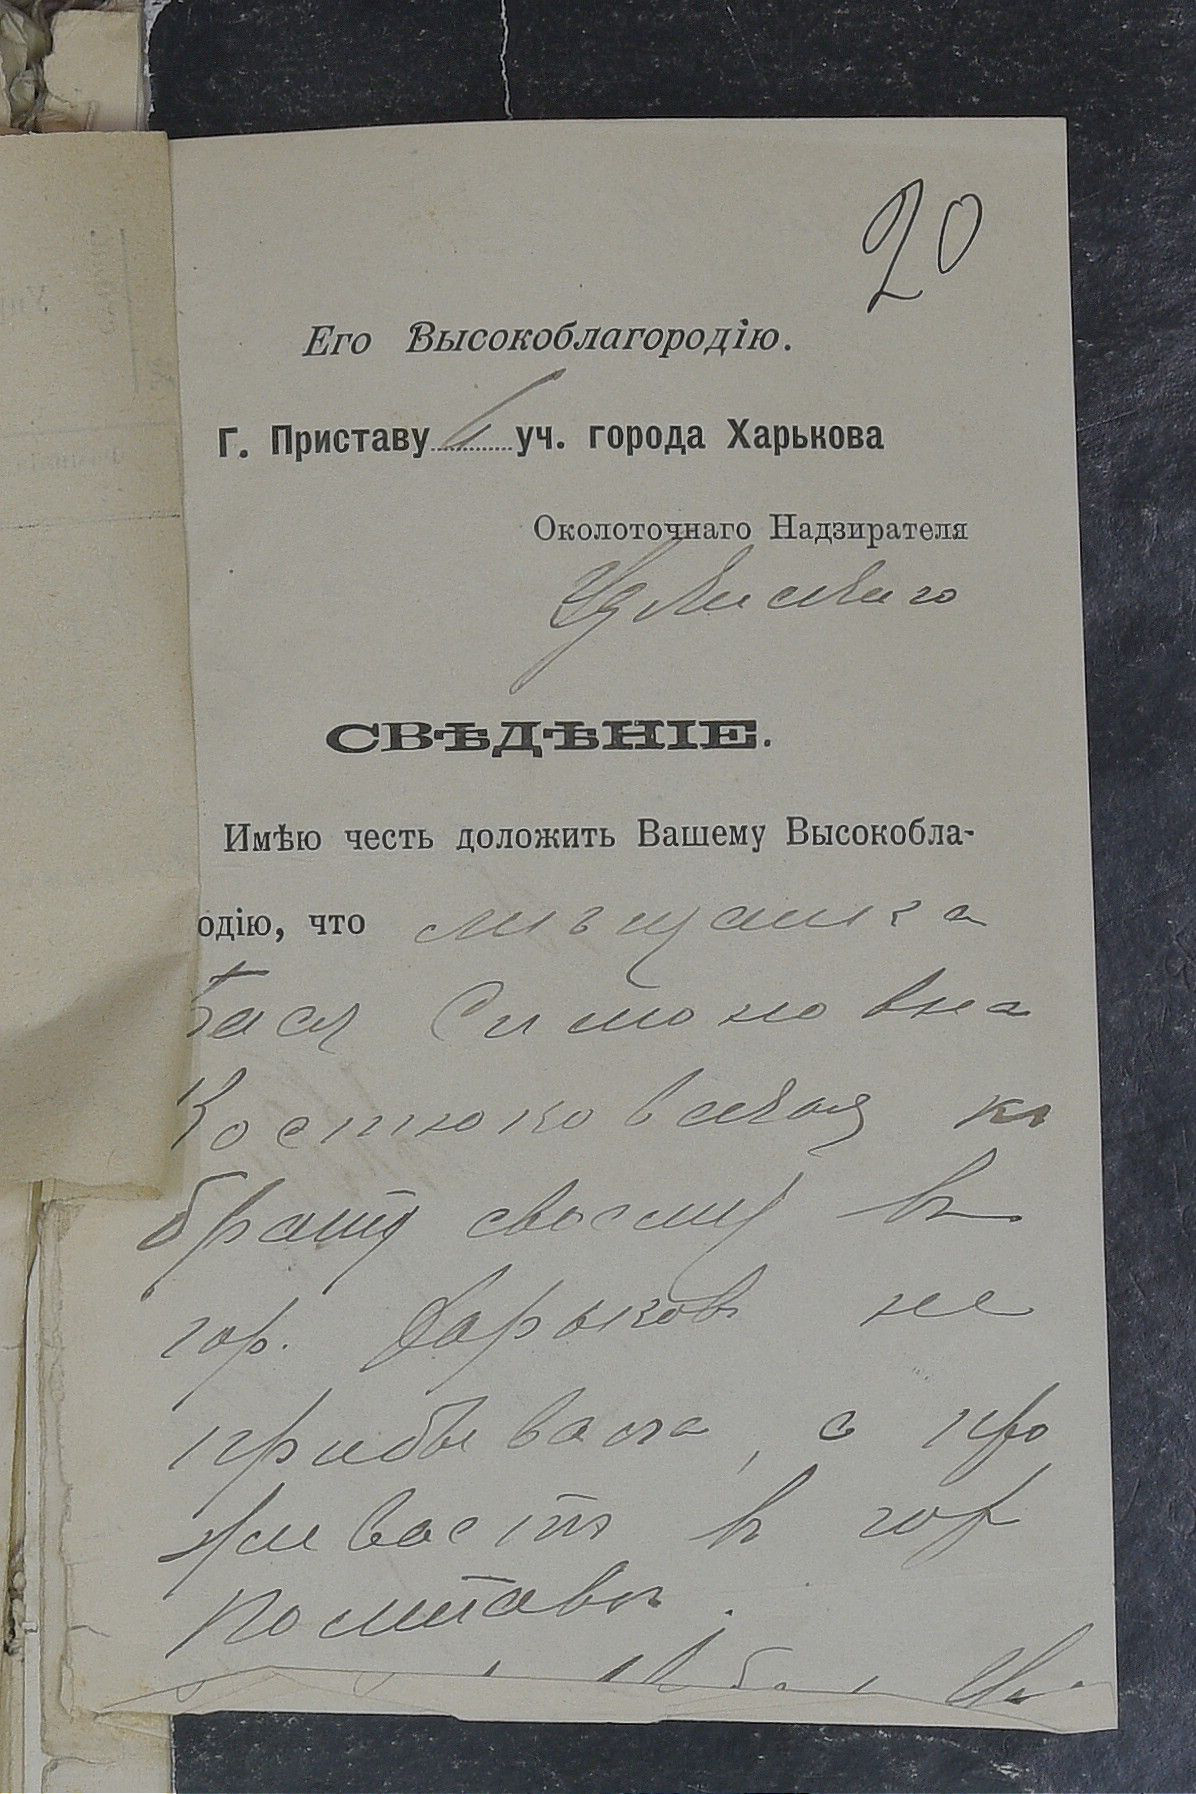 20
Его Высокоблагородію.
Г. Приставу 1 уч. города Харькова
Околоточнаго Надзирателя
СВѢДѢНІЕ.
Имѣю честь доложить Вашему Высокобла-
одію, что мѣщанка
Бася Симоновна
Костюковская къ
брату своему въ
гор. Харьковъ не
прибывала, а про
живаетъ въ гор
Полтавѣ.